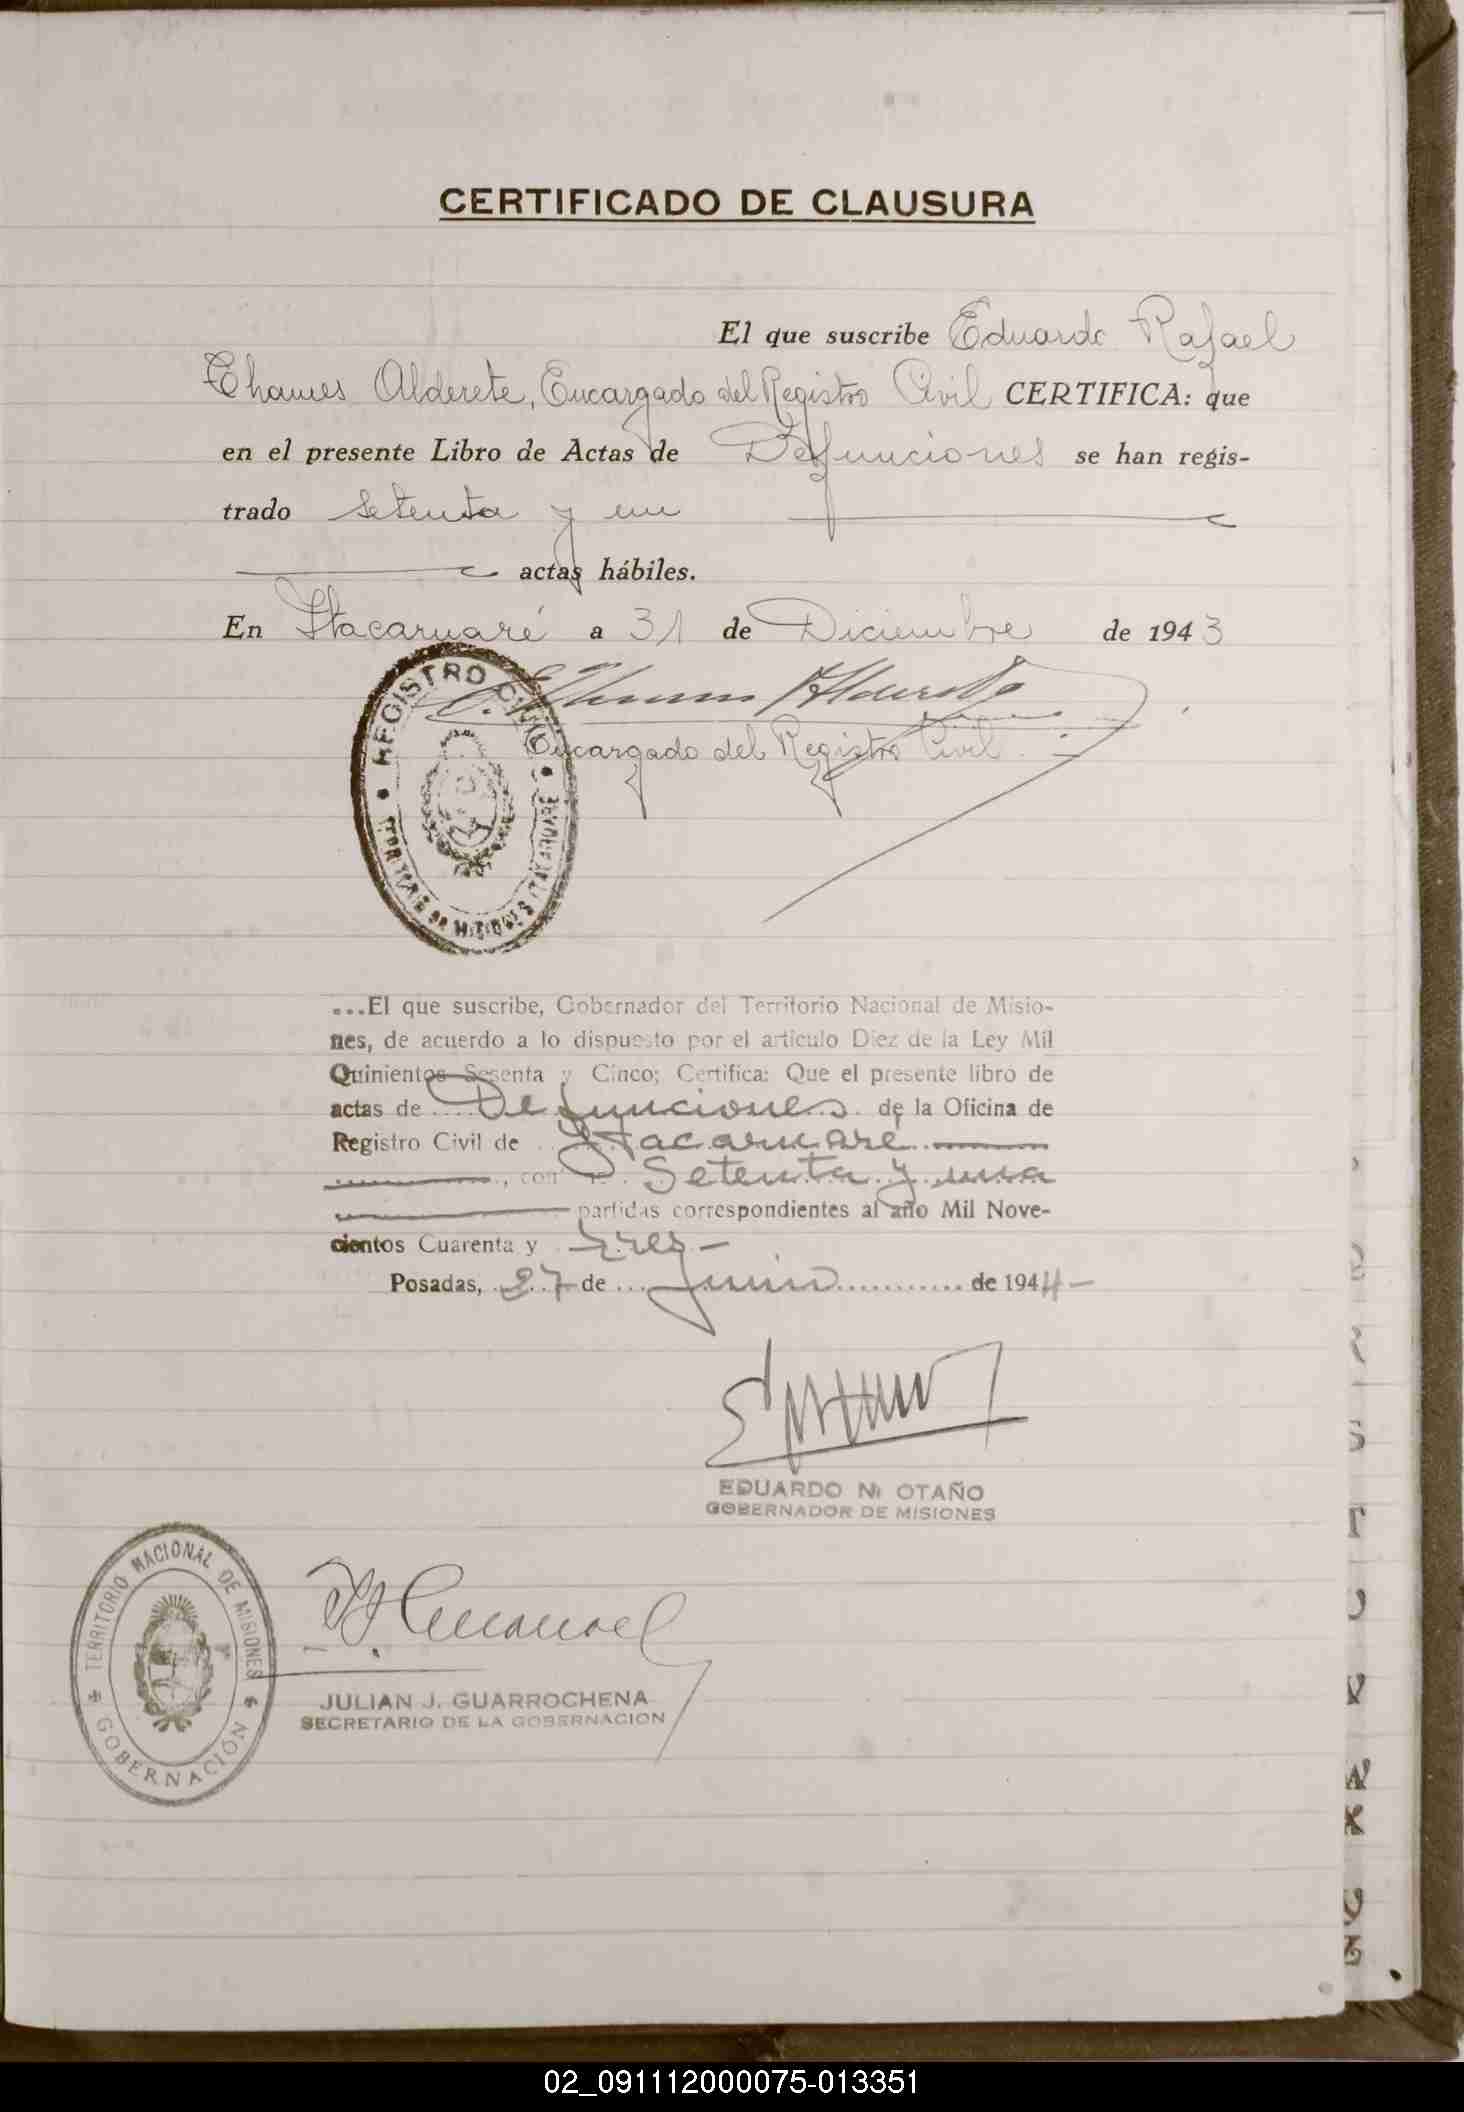 CERTIFICADO DE CLAUSURA
El que suscribe Eduardo Rafael
Thames Alderete, Encargado del Registro Civil CERTIFICA: que
en el presente Libro de Actas de Defunciones se han regis-
trado setenta y un
actas hábiles.
En Itacaruaré a 31 de Diciembre de 1943
E. Thames Alderete
Encargado del Registro Civil.
REGISTRO CIVIL
TERRITORIO DE MISIONES ITACARUARE
...El que suscribe, Gobernador del Territorio Nacional de Misio-
nes, de acuerdo a lo dispuesto por el artículo Diez de la Ley Mil
Quinientos Sesenta y Cinco; Certifica: Que el presente libro de
actas de Defunciones de la Oficina de
Registro Civil de Itacaruaré
, con Setenta y una
partidas correspondientes al año Mil Nove-
cientos Cuarenta y tres-
Posadas, 27 de junio de 1944-
EDUARDO N. OTAÑO
GOBERNADOR DE MISIONES
TERRITORIO NACIONAL DE MISIONES
GOBERNACIÓN
JULIAN J. GUARROCHENA
SECRETARIO DE LA GOBERNACION
02_091112000075-013351